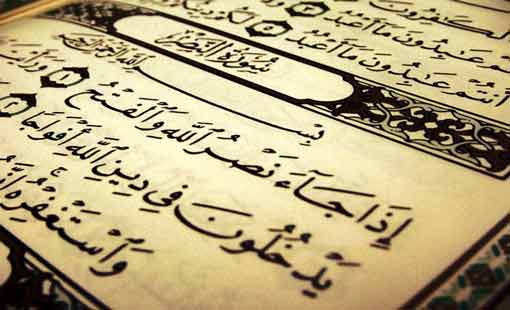 لْكَٰفِرُونَ
تُمْ عَٰبِدُونَ مَآ أَعْبُدُ
أَنتُمْ عَٰبِدُونَ مَآ أَعْبُدُ ۝٥ لَكُمْ دِينُكُمْ
سُورَةُ النَّصْرِ
بِسْمِ اللَّهِ الرَّحْمَٰنِ الرَّحِيمِ
إِذَا جَآءَ نَصْرُ اللَّهِ وَالْفَتْحُ ۝١ وَرَأَيْتَ
يَدْخُلُونَ فِي دِينِ اللَّهِ أَفْوَاجًا ۝٢
وَاسْتَغْفِرْهُ إِنَّهُ